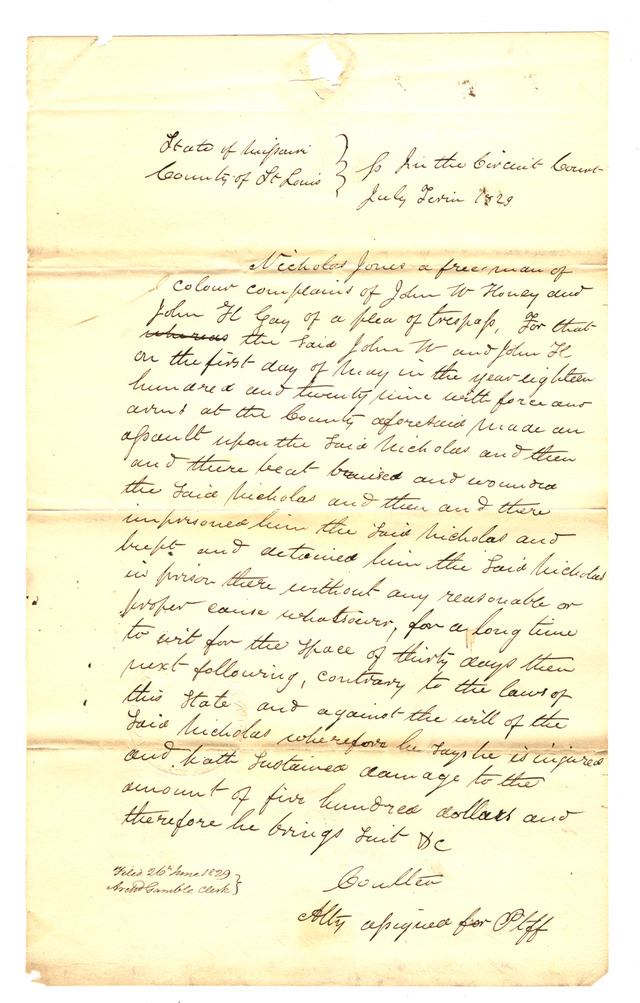 State of Missouri
County of St Louis } ss In the Circuit Court
July Term 1829
Nicholas Jones a free man of
colour complains of John W Honey and
John H Gay of a plea of trespass, For that
whereas the said John W and John H
on the first day of May in the year eighteen
hundred and twenty nine with force and
arms at the County aforesaid made an
assault upon the said Nicholas and then
and there beat bruised and wounded
the said Nicholas and then and there
imprisoned him the said Nicholas and
kept and detained him the said Nicholas
in prison there without any reasonable or
proper cause whatsoever, for a long time
to wit for the space of thirty days then
next following, contrary to the laws of
this State and against the will of the
said Nicholas wherefore he says he is injured
and hath sustained damage to the
amount of five hundred dollars and
therefore he brings suit &c
Coulter
Atty assigned for Ptff
Filed 26th June 1829
Archd Gamble Clerk }